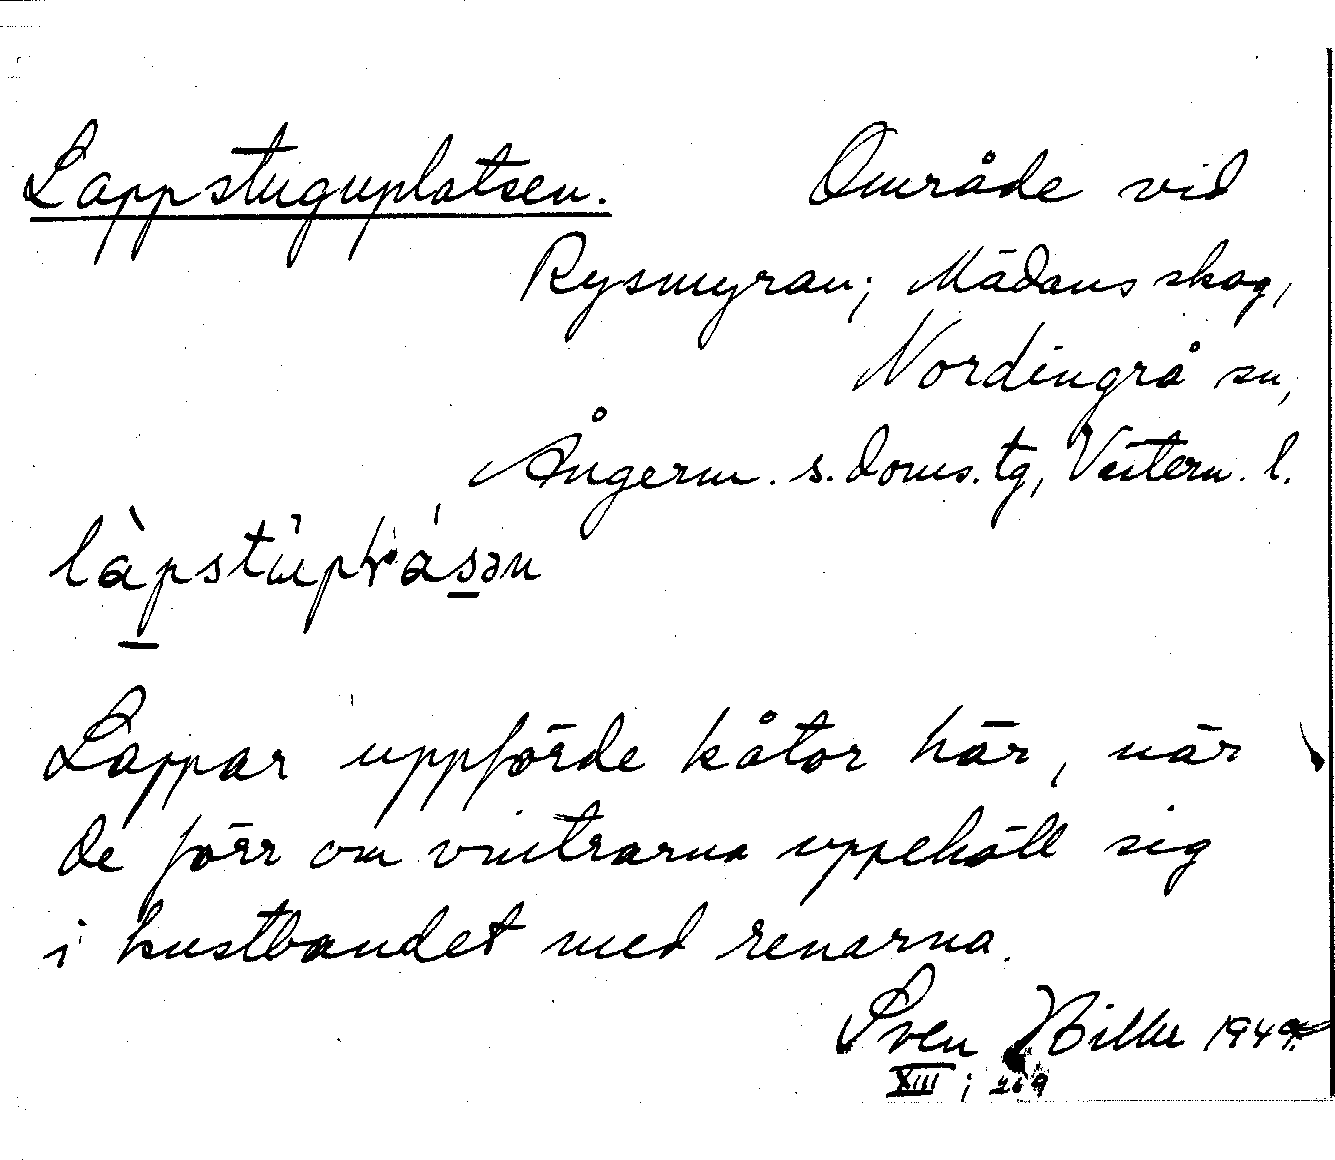 Lappstuguplatsen. Område vid
Rysmyran; Mädans skog,
Nordingrå sn,
Ångerm. s. doms. tg, Västern. l.
Lappar uppförde kåtor här, när
de förr om vintrarna uppehöll sig
i kustbandet med renarna.
Sven 1949.
XIII ; 269